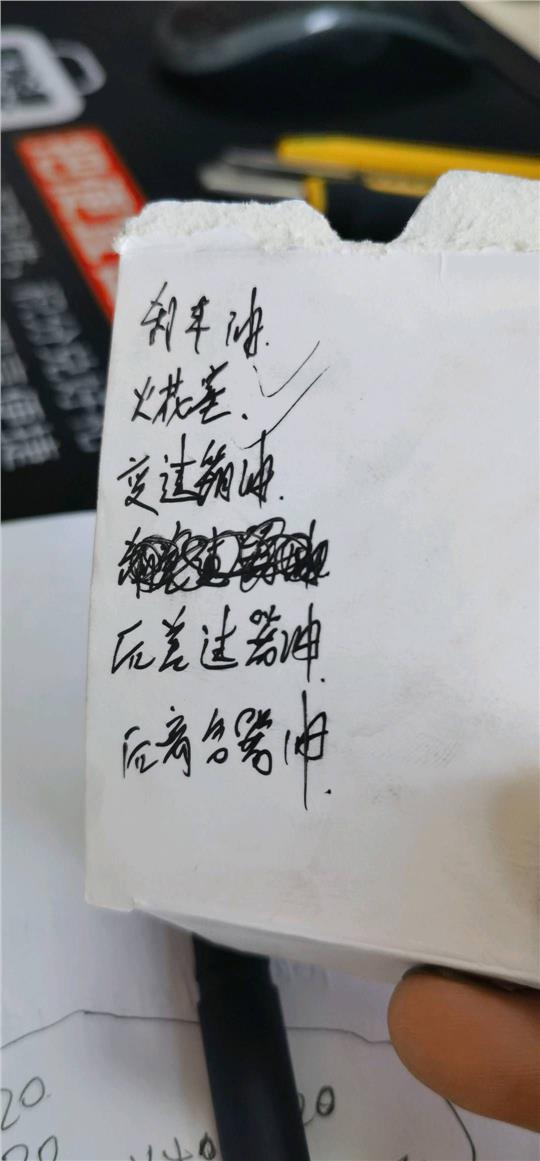 刹车油.
火花塞.
变速箱油.
后差速器油.
后离合器油.
20
20